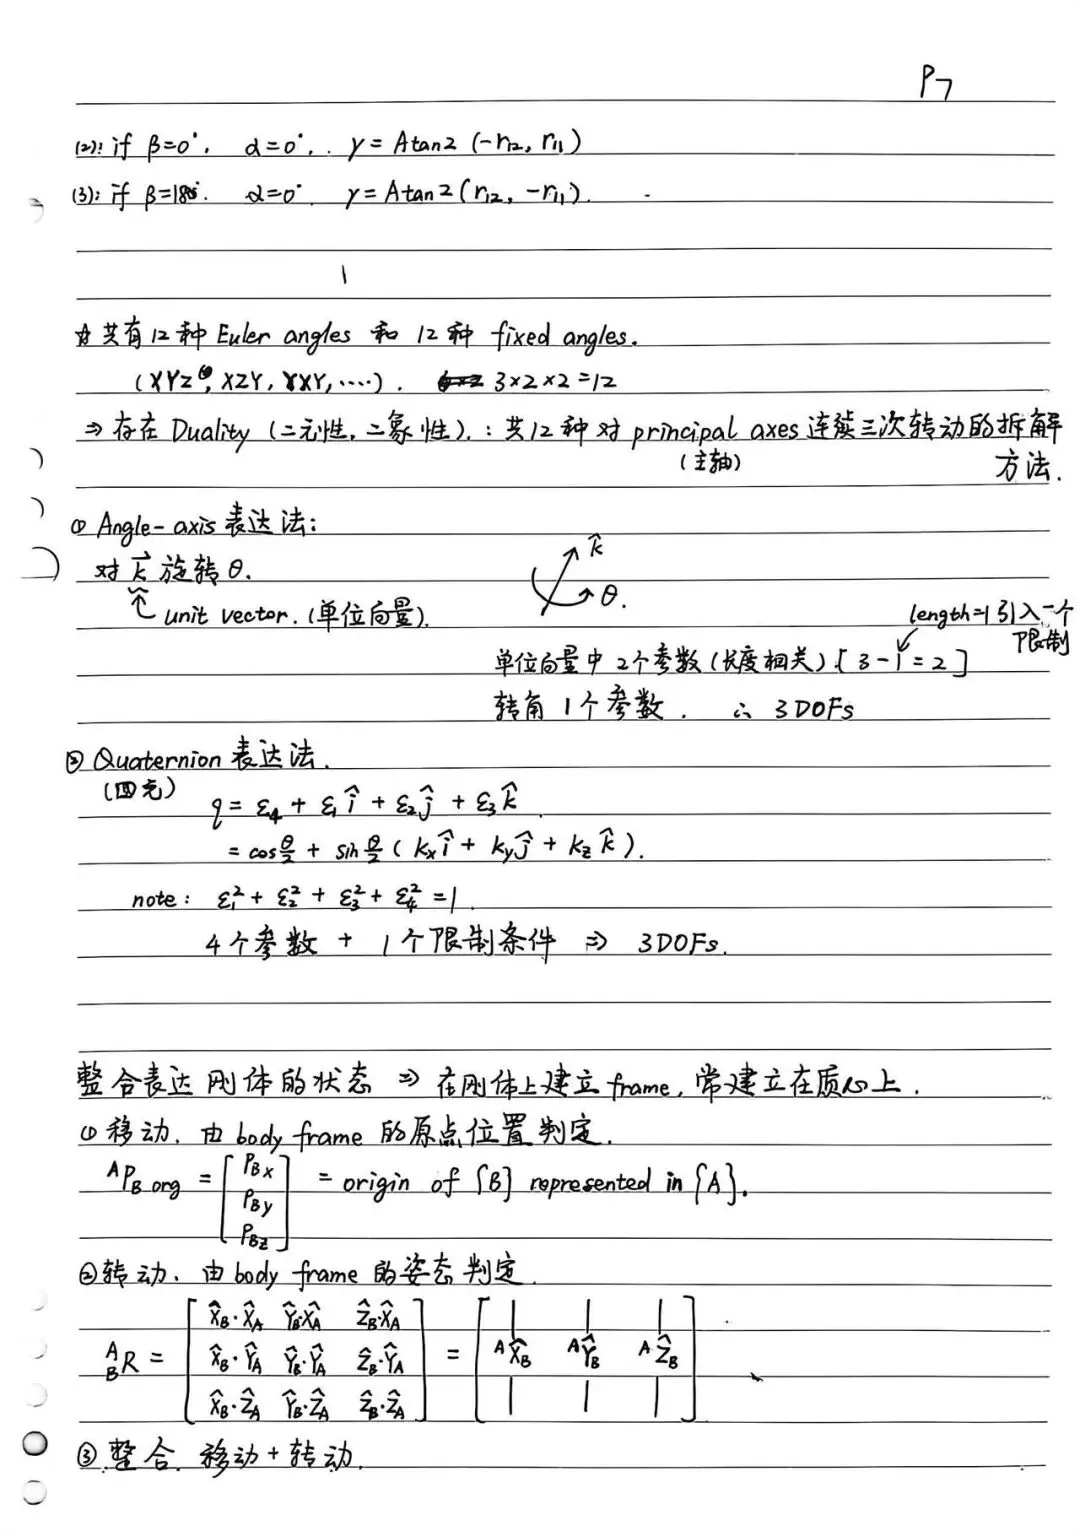 P7
(2): if β=0°, α=0°, γ = Atan2 (-r₁₂, r₁₁)
(3): if β=180°. α=0°. γ = Atan2 (r₁₂, -r₁₁).
☆ 共有12种 Euler angles 和 12种 fixed angles.
(XYZ, XZY, YXY, ....). 3×2×2=12
⇒ 存在 Duality (二元性, 二象性).: 共12种对 principal axes 连续三次转动的拆解
(主轴) 方法.
① Angle-axis 表达法:
对 k⃗ 旋转 θ.
k̂
θ.
↑ unit vector. (单位向量).
length=1引入一个
限制
单位向量中 2个参数 (长度相关) [3-1=2]
转角 1个参数. ∴ 3DOFs
② Quaternion 表达法.
(四元)
q = ε₄ + ε₁ î + ε₂ ĵ + ε₃ k̂
= cos θ/2 + sin θ/2 ( kₓ î + k_y ĵ + k_z k̂ ).
note: ε₁² + ε₂² + ε₃² + ε₄² = 1.
4个参数 + 1个限制条件 ⇒ 3DOFs.
整合表达 刚体的状态 ⇒ 在刚体上建立 frame, 常建立在质心上.
① 移动. 由 body frame 的原点位置判定.
ᴬP_B org = [ P_Bx P_By P_Bz ] = origin of {B} represented in {A}.
② 转动. 由 body frame 的姿态判定.
X̂_B·X̂_A Ŷ_B·X̂_A Ẑ_B·X̂_A
ᴬ_B R = X̂_B·Ŷ_A Ŷ_B·Ŷ_A Ẑ_B·Ŷ_A = ᴬX̂_B ᴬŶ_B ᴬẐ_B
X̂_B·Ẑ_A Ŷ_B·Ẑ_A Ẑ_B·Ẑ_A
③ 整合. 移动+转动.